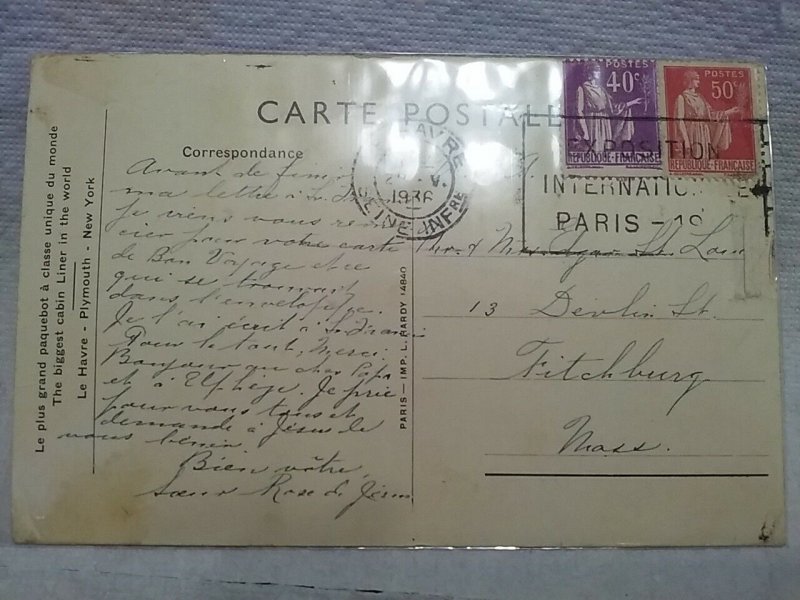 CARTE POSTALE
Correspondance
Le plus grand paquebot à classe unique du monde
The biggest cabin Liner in the world
Le Havre - Plymouth - New York
Avant de
ma lettre à Sr
je viens vous remer
cier pour votre carte
de Bon Voyage et ce
qui se trouvait
dans l'enveloppe.
Je l'ai écrit à Sr. Franc
Pour le tout, Merci.
Bonjour au cher Papa
et à Elphège. Je prie
pour vous tous et
demande à Jésus de
vous bénir
Bien vôtre,
Soeur Rose de Jésus
PARIS — IMP. L. HARDY 14840
HAVRE
1936
SEINE INFRE
POSTES
40c
REPUBLIQUE-FRANÇAISE
POSTES
50c
REPUBLIQUE-FRANÇAISE
EXPOSITION
INTERNATIO E
PARIS - 19
Mr & Mrs Edgar St. Louis
13 Devlin St.
Fitchburg
Mass.